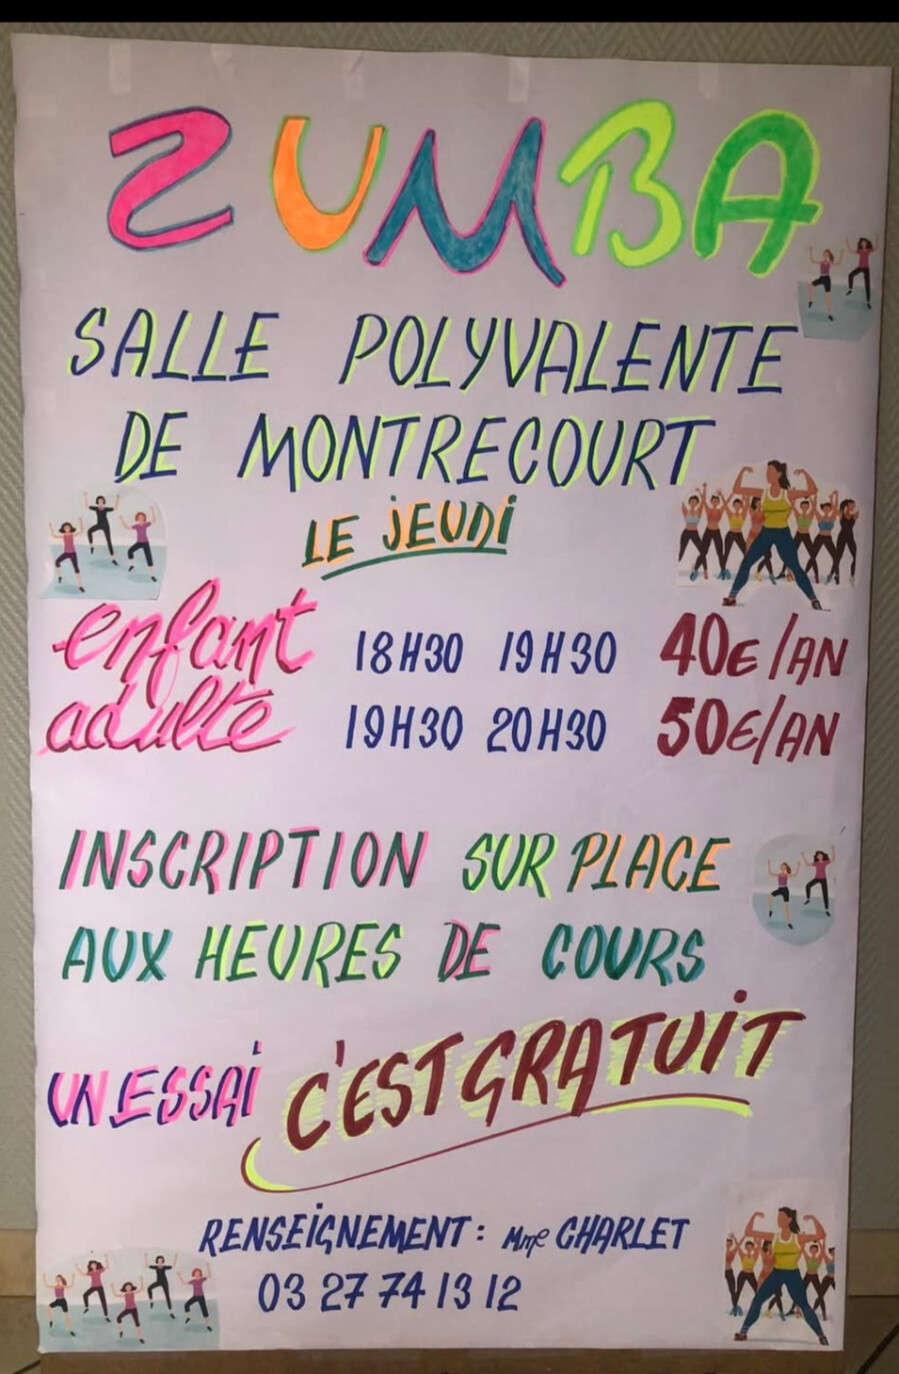 ZUMBA
SALLE POLYVALENTE
DE MONTRECOURT
LE JEUDI
enfant 18H30 19H30 40€/AN
adulte 19H30 20H30 50€/AN
INSCRIPTION SUR PLACE
AUX HEURES DE COURS
UN ESSAI C'EST GRATUIT
RENSEIGNEMENT : Mme CHARLET
03 27 74 13 12